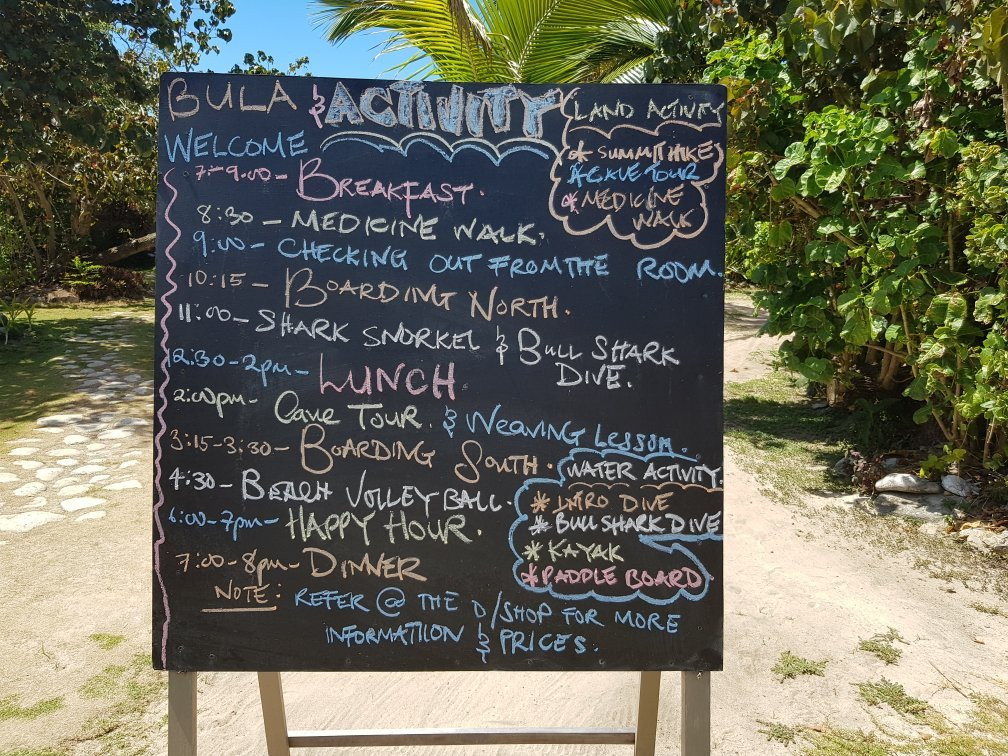 BULA & ACTIVITY
WELCOME
LAND ACTIVITY
* SUMMIT HIKE
* CAVE TOUR
* MEDICINE
WALK
7-9.00- BREAKFAST.
8:30 - MEDICINE WALK.
9:00 - CHECKING OUT FROM THE ROOM.
10:15 - BOARDING NORTH.
11:00 - SHARK SNORKEL & BULL SHARK
DIVE.
12:30-2pm- LUNCH
2:00pm- Cave Tour. & WEAVING LESSON.
3:15-3:30- BOARDING SOUTH.
4:30- BEACH VOLLEY BALL.
6:00-7pm- HAPPY HOUR.
7:00-8pm- DINNER
WATER ACTIVITY.
* INTRO DIVE
* BULL SHARK DIVE
* KAYAK
* PADDLE BOARD
NOTE: REFER @ THE D/SHOP FOR MORE
INFORMATION & PRICES.